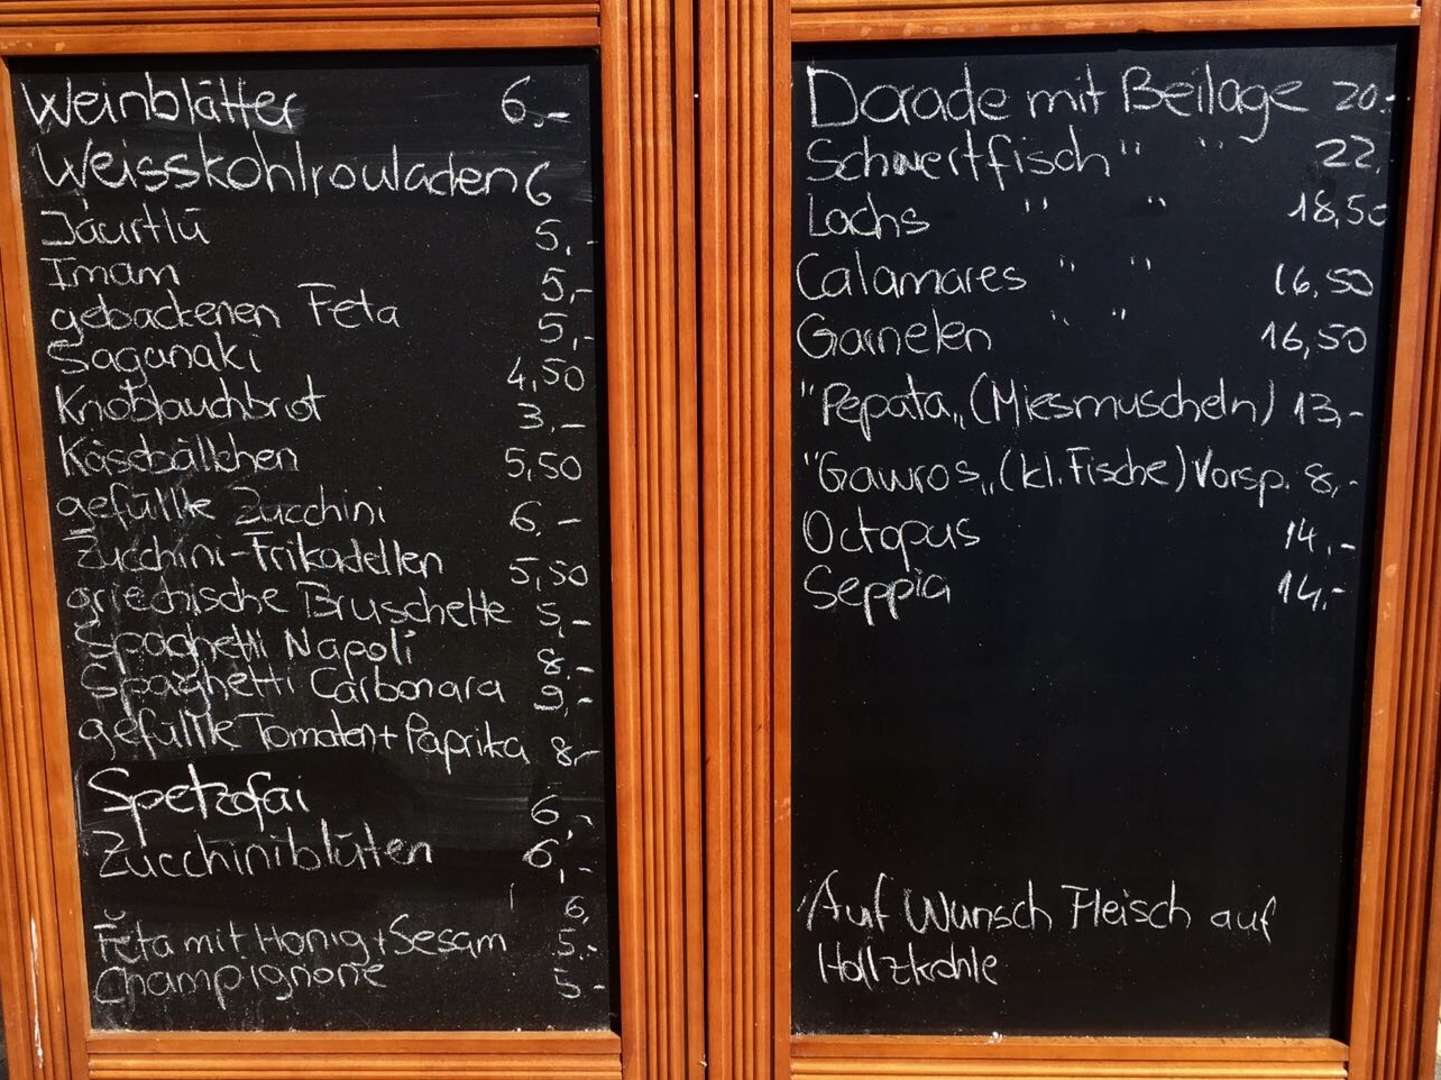 Weinblätter 6,-
Weisskohlrouladen 6
Jaurtlū 5,-
Imam 5,-
gebackenen Feta 5,-
Saganaki 4,50
Knoblauchbrot 3,-
Käsebällchen 5,50
gefüllte Zucchini 6,-
Zucchini-Frikadellen 5,50
griechische Bruschette 5,-
Spaghetti Napoli 8,-
Spaghetti Carbonara 9,-
gefüllte Tomaten+Paprika 8,-
Spetzofai 6,-
Zucchiniblüten 6,-
6,
Feta mit Honig+Sesam 5,-
Champignone 5-
Dorade mit Beilage 20.-
Schwertfisch " " 22,
Lachs " " 18,50
Calamares " " 16,50
Garnelen " " 16,50
"Pepata„ (Miesmuscheln) 13,-
"Gawros„ (kl. Fische) Vorsp. 8,-
Octopus 14,-
Seppia 14,-
Auf Wunsch Fleisch auf
Hollzkohle